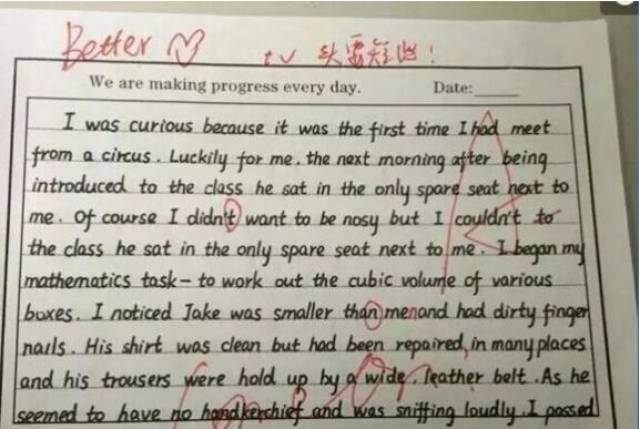 Better
We are making progress every day. Date:
I was curious because it was the first time I had meet
from a circus. Luckily for me. the next morning after being
introduced to the class he sat in the only spare seat next to
me. Of course I didn't want to be nosy but I couldn't to
the class he sat in the only spare seat next to me. I began my
mathematics task - to work out the cubic volume of various
boxes. I noticed Jake was smaller than menand had dirty finger
nails. His shirt was clean but had been repaired, in many places
and his trousers were hold up by a wide. leather belt. As he
seemed to have no handkerchief and was sniffing loudly. I passed